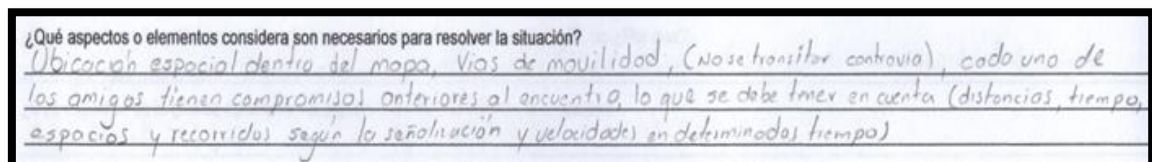 ¿Qué aspectos o elementos considera son necesarios para resolver la situación?
Ubicación espacial dentro del mapa, Vias de movilidad, (No se transitar contravia), cada uno de
los amigos tienen compromisos anteriores al encuentro, lo que se debe tener en cuenta (distancias, tiempo,
espacios y recorridos según la señalización y velocidades en determinados tiempos)